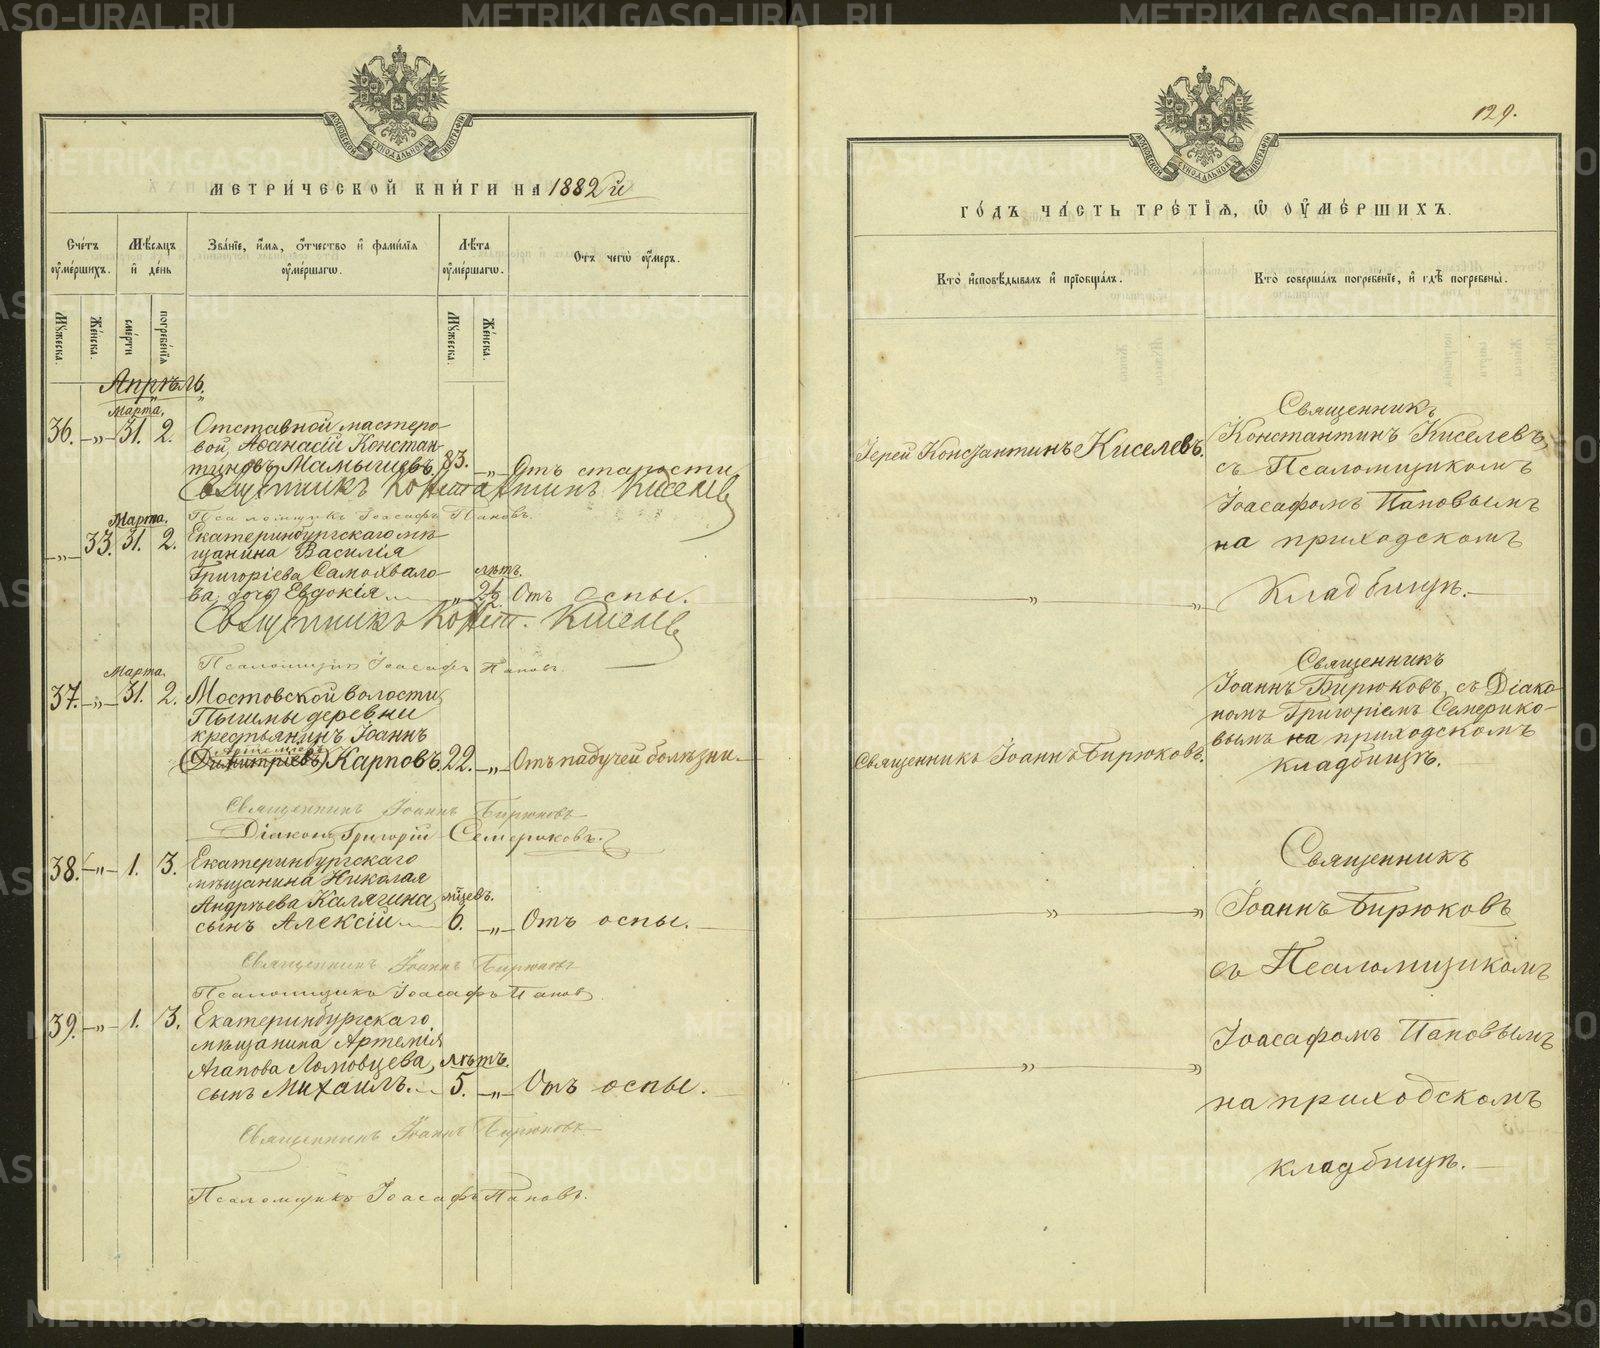 МЕТРИ́ЧЕСКОЙ КНИ́ГИ НА 1882й
Сче́тъ оу҆ме́ршихъ.
Мѣ́сяцъ и҆ де́нь
Зва́нїе, и҆́мя, ѻ҆́тчество и҆ фами́лїя оу҆ме́ршагѡ.
Лѣ́та оу҆ме́ршагѡ.
Ѿ чегѡ̀ оу҆́меръ.
Мꙋ́жеска.
Же́нска.
сме́рти
погребе́нїя
Мꙋ́жеска.
Же́нска.
Апрѣль.
Марта.
36. -„- 31. 2. Отставной мастеро-
вой, Аѳанасій Констан-
тиновъ Мамышевъ. 83. -„- Отъ старости
Священникъ Константинъ Киселевъ
Псаломщикъ Іоасафъ Паповъ.
Марта.
-„- 33. 31. 2. Екатеринбургскаго мѣ-
щанина Василія
Григоріева Самохвало- лѣтъ.
ва, дочь Евдокія. „ 2½ Отъ оспы.
Священникъ Конст. Киселевъ
Псаломщикъ Іоасафъ Паповъ.
Марта.
37. -„- 31. 2. Мостовской волости,
Пышмы деревни
крестьянинъ Іоаннъ
Артемьевъ
(Димитріевъ) Карповъ. 22. -„- Отъ падучей болѣзни.
Священникъ Іоаннъ Бирюковъ
Діаконъ Григорій Семериковъ.
38. -„- 1. 3. Екатеринбургскаго
мѣщанина Николая
Андреева Калягина, мцевъ.
сынъ Алексій 6. -„- Отъ оспы.
Священникъ Іоаннъ Бирюковъ
Псаломщикъ Іоасафъ Паповъ.
39. -„- 1. 3. Екатеринбургскаго
мѣщанина Артемія
Агапова Ломовцева, лѣтъ.
сынъ Михаилъ. 5. -„- Отъ оспы.
Священникъ Іоаннъ Бирюковъ
Псаломщикъ Іоасафъ Паповъ.
129.
ГО́ДЪ ЧА́СТЬ ТРЕ́ТЇЯ, Ѽ ОУ҆МЕ́РШИХЪ.
Кто̀ и҆сповѣ́дывалъ и҆ прїобща́лъ.
Кто̀ соверша́лъ погребе́нїе, и҆ гдѣ̀ погребены̀.
Іерей Константинъ Киселевъ.
Священникъ
Константинъ Киселевъ
съ Псаломщикомъ
Іоасафомъ Паповымъ
на приходскомъ
Кладбищѣ.
Священникъ Іоаннъ Бирюковъ.
Священникъ
Іоаннъ Бирюковъ, съ Діако-
номъ Григоріемъ Семерико-
вымъ на приходскомъ
кладбищѣ.
Священникъ
Іоаннъ Бирюковъ
съ Псаломщикомъ
Іоасафомъ Паповымъ
на приходскомъ
кладбищѣ.
METRIKI.GASO-URAL.RU